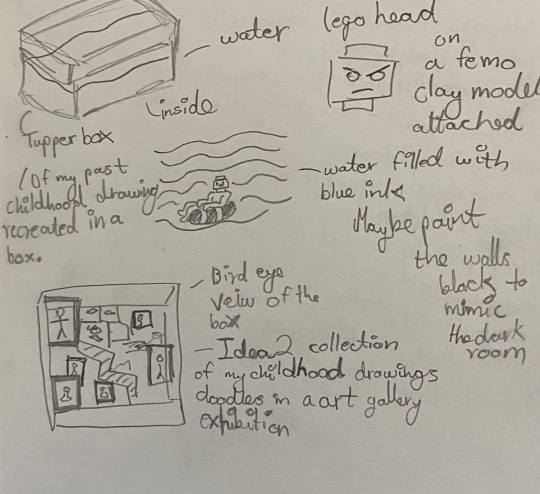 water
lego head
on
a femo
clay model
attached
inside
Tupper box
/Of my past
childhood drawing
recreated in a
box.
water filled with
blue ink
Maybe paint
the walls
black to
mimic
the dark
room
Bird eye
veiw of the
box
- Idea 2 collection
of my childhood drawings
doodles in a art gallery
exhibition